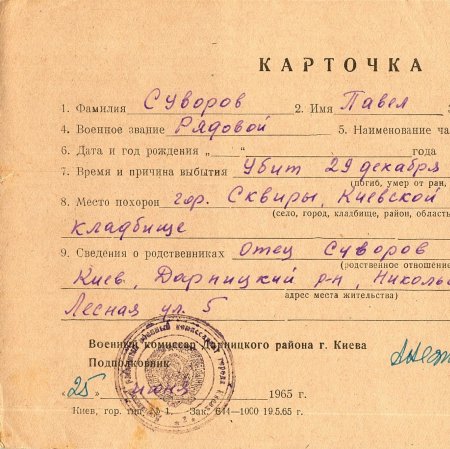 КАРТОЧКА
1. Фамилия Суворов 2. Имя Павел 3
4. Военное звание Рядовой 5. Наименование ча
6. Дата и год рождения „ “ года
7. Время и причина выбытия Убит 29 декабря
(погиб, умер от ран,
8. Место похорон гор. Сквиры, Киевской
(село, город, кладбище, район, област
кладбище
9. Сведения о родственниках Отец Суворов
(родственное отношение
Киев, Дарницкий р-н, Николь
адрес места жительства)
Лесная ул. 5
Военный комиссар Дарницкого района г. Киева
Подполковник
„25" июня 1965 г.
Киев, гор. тип. № 1. Зак. 644—1000 19.5.65 г.